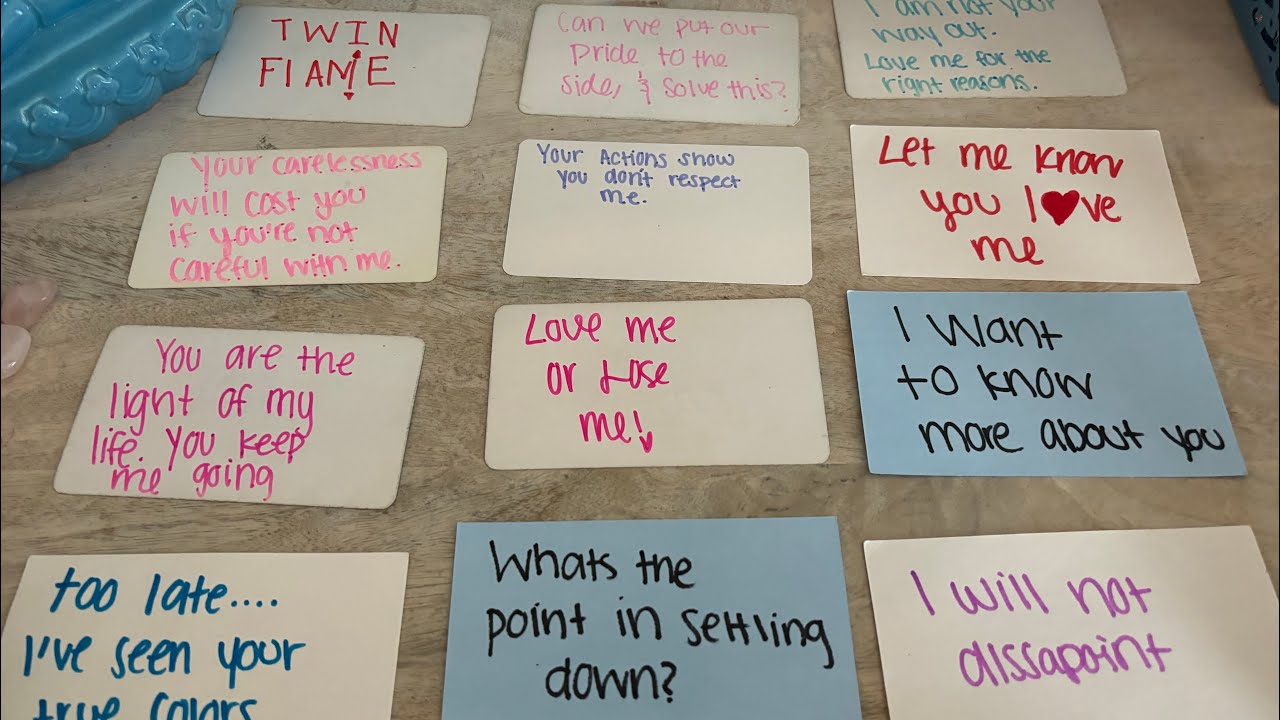 TWIN
FlAME
Can we put our
pride to the
side, & solve this?
I am not your
way out.
Love me for the
right reasons.
Your carelessness
will cost you
if you're not
careful with me.
Your Actions show
you don't respect
me.
Let me know
you l♥ve
me
You are the
light of my
life. You keep
me going
Love me
or Lose
me!
I want
to know
more about you
too late....
I've seen your
true colors
Whats the
point in settling
down?
I will not
dissapoint